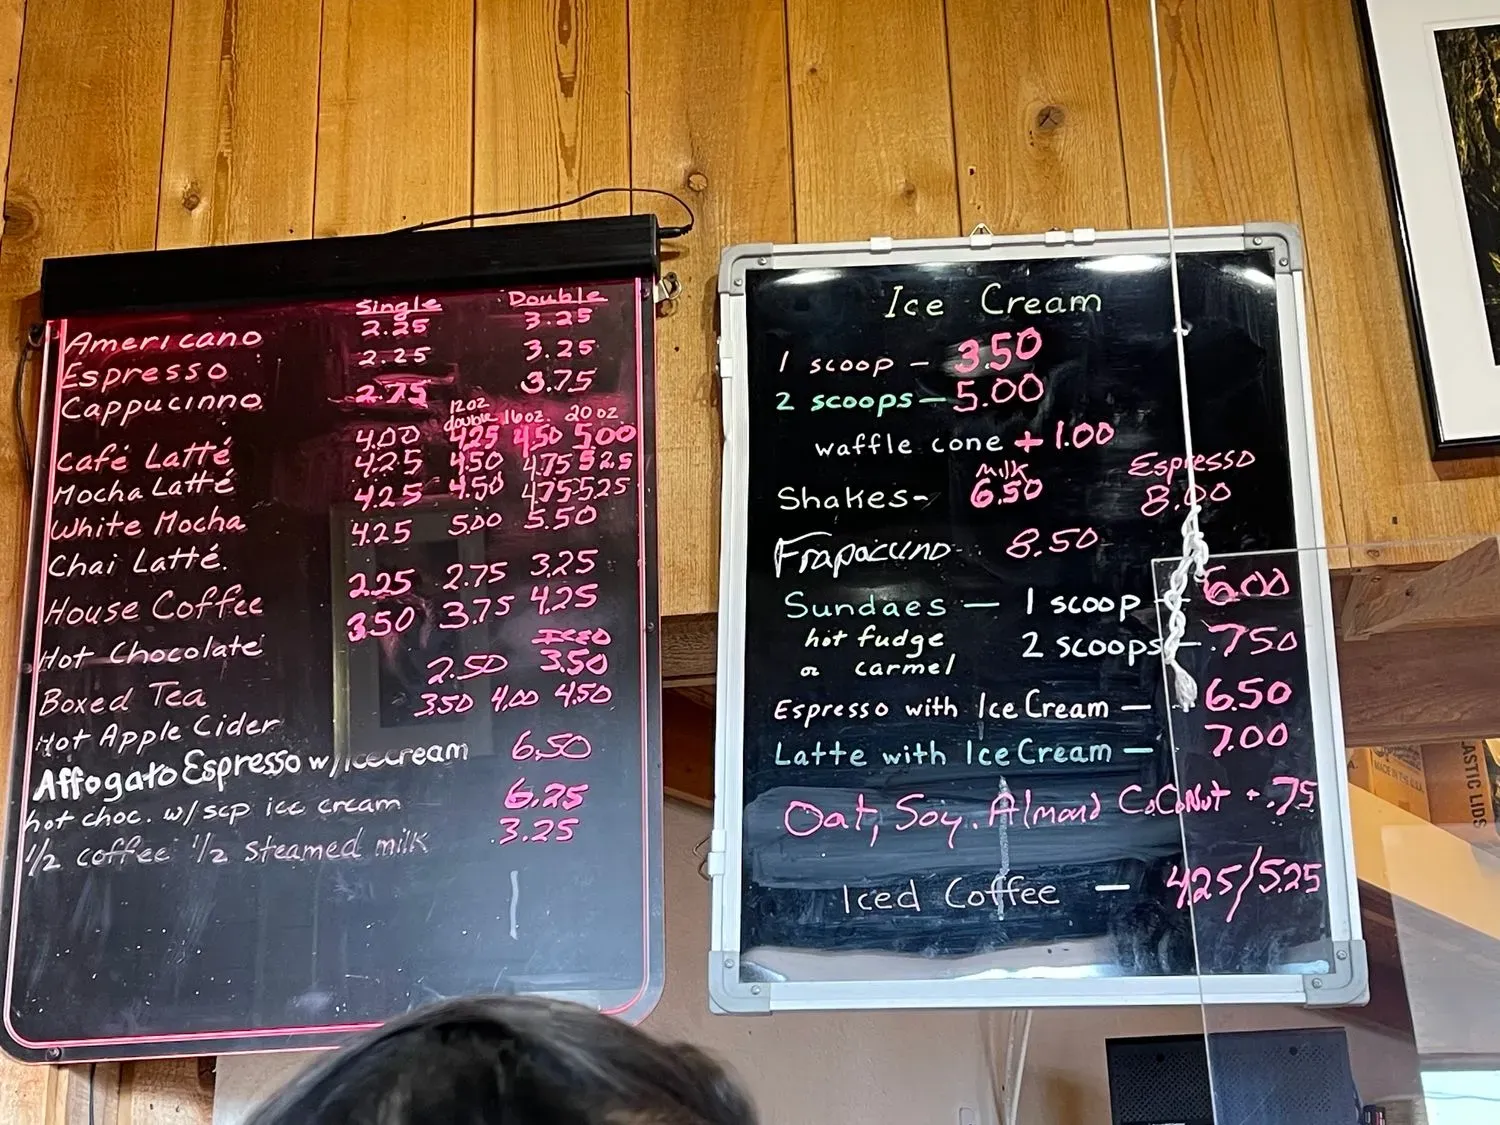 Single Double
Americano 2.25 3.25
Espresso 2.25 3.25
Cappucinno 2.75 3.75
12oz double 16oz. 20oz
Café Latté 4.00 4.25 4.50 5.00
Mocha Latté 4.25 4.50 4.75 5.25
White Mocha 4.25 4.50 4.75 5.25
Chai Latté. 4.25 5.00 5.50
House Coffee 2.25 2.75 3.25
Hot Chocolate 3.50 3.75 4.25
ICED
Boxed Tea 2.50 3.50
Hot Apple Cider 3.50 4.00 4.50
Affogato Espresso w/Icecream 6.50
hot choc. w/ scp ice cream 6.25
1/2 coffee 1/2 steamed milk 3.25
Ice Cream
1 scoop - 3.50
2 scoops - 5.00
waffle cone + 1.00
Milk Espresso
Shakes- 6.50 8.00
Frapaccino 8.50
Sundaes - 1 scoop - 6.00
hot fudge 2 scoops - 7.50
or carmel
Espresso with Ice Cream - 6.50
Latte with Ice Cream - 7.00
Oat, Soy, Almond CoCoNut + .75
Iced Coffee - 4.25/5.25
MADE IN THE U.S.A.
ASTIC LIDS